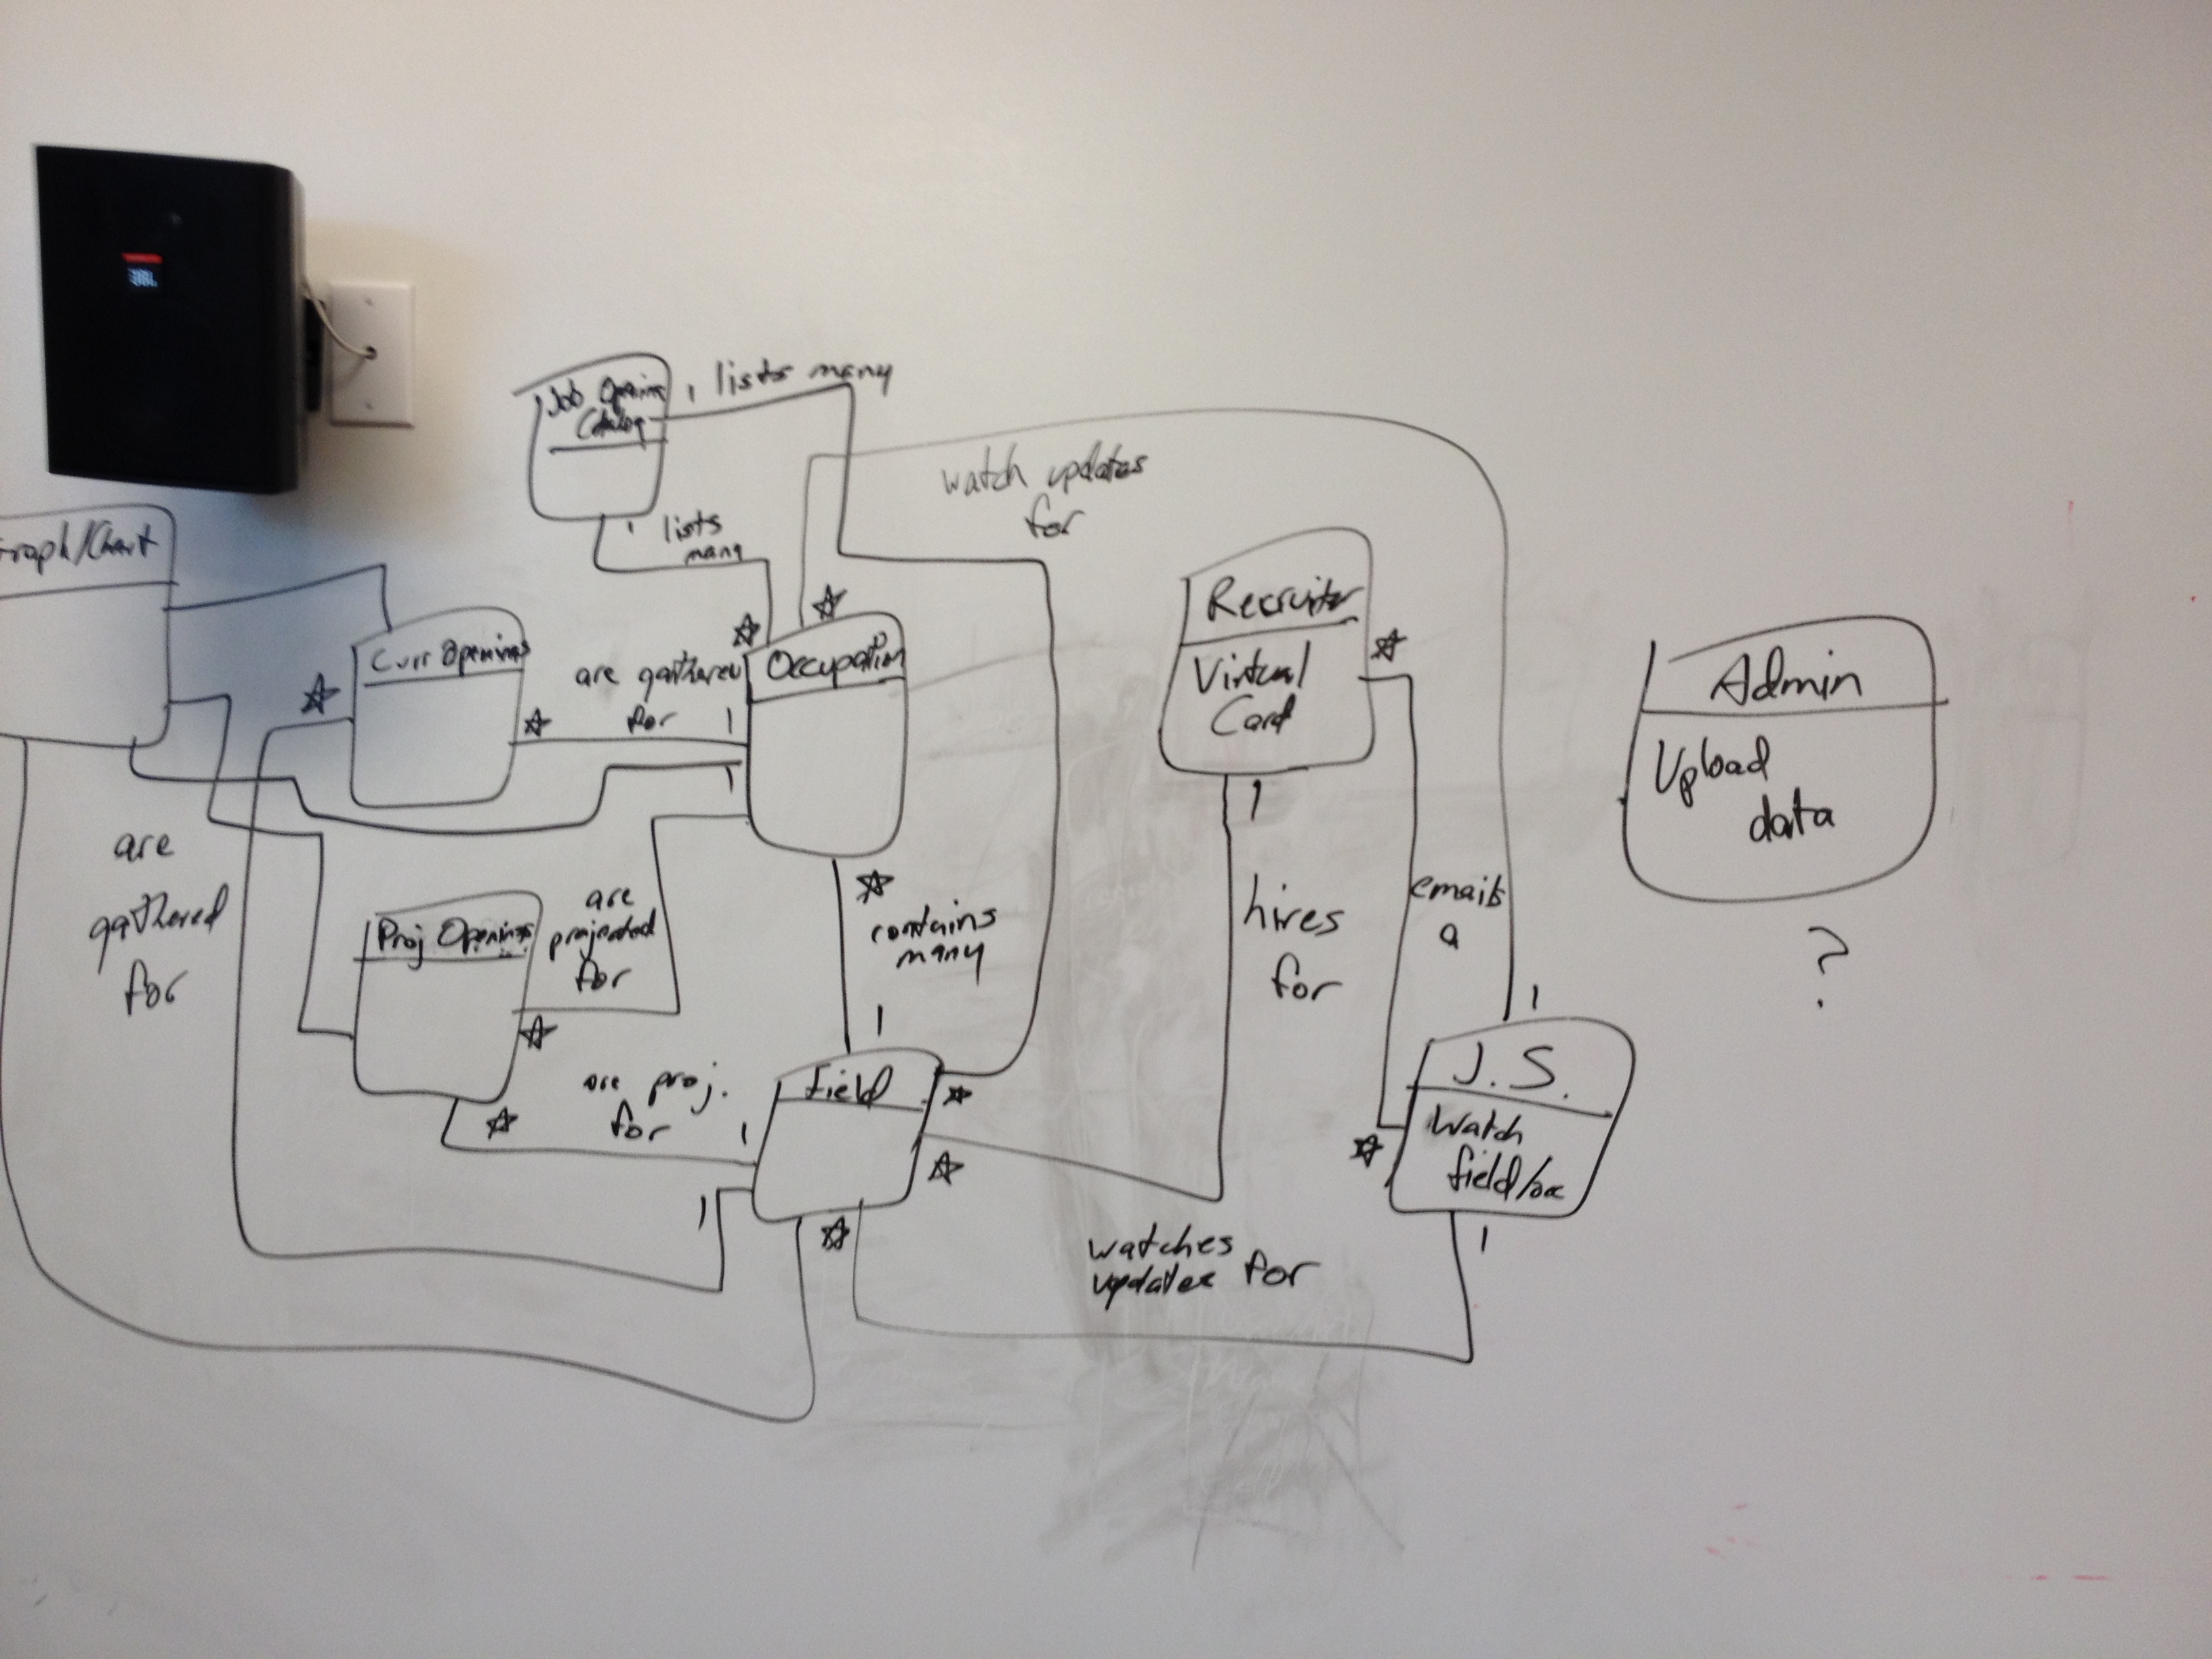 JBL
Job Opening
Catalog
1 lists many
1 lists
many
watch updates
for
raph/Chart
Curr Openings
are gathered
for
1
1
Occupation
Recruiter
Virtual
Card
1
Admin
Upload
data
?
are
gathered
for
Proj Openings
are
projected
for
contains
many
1
hires
for
emails
a
1
J. S.
Watch
field/oc
1
are proj.
for
1
Field
1
watches
updates for